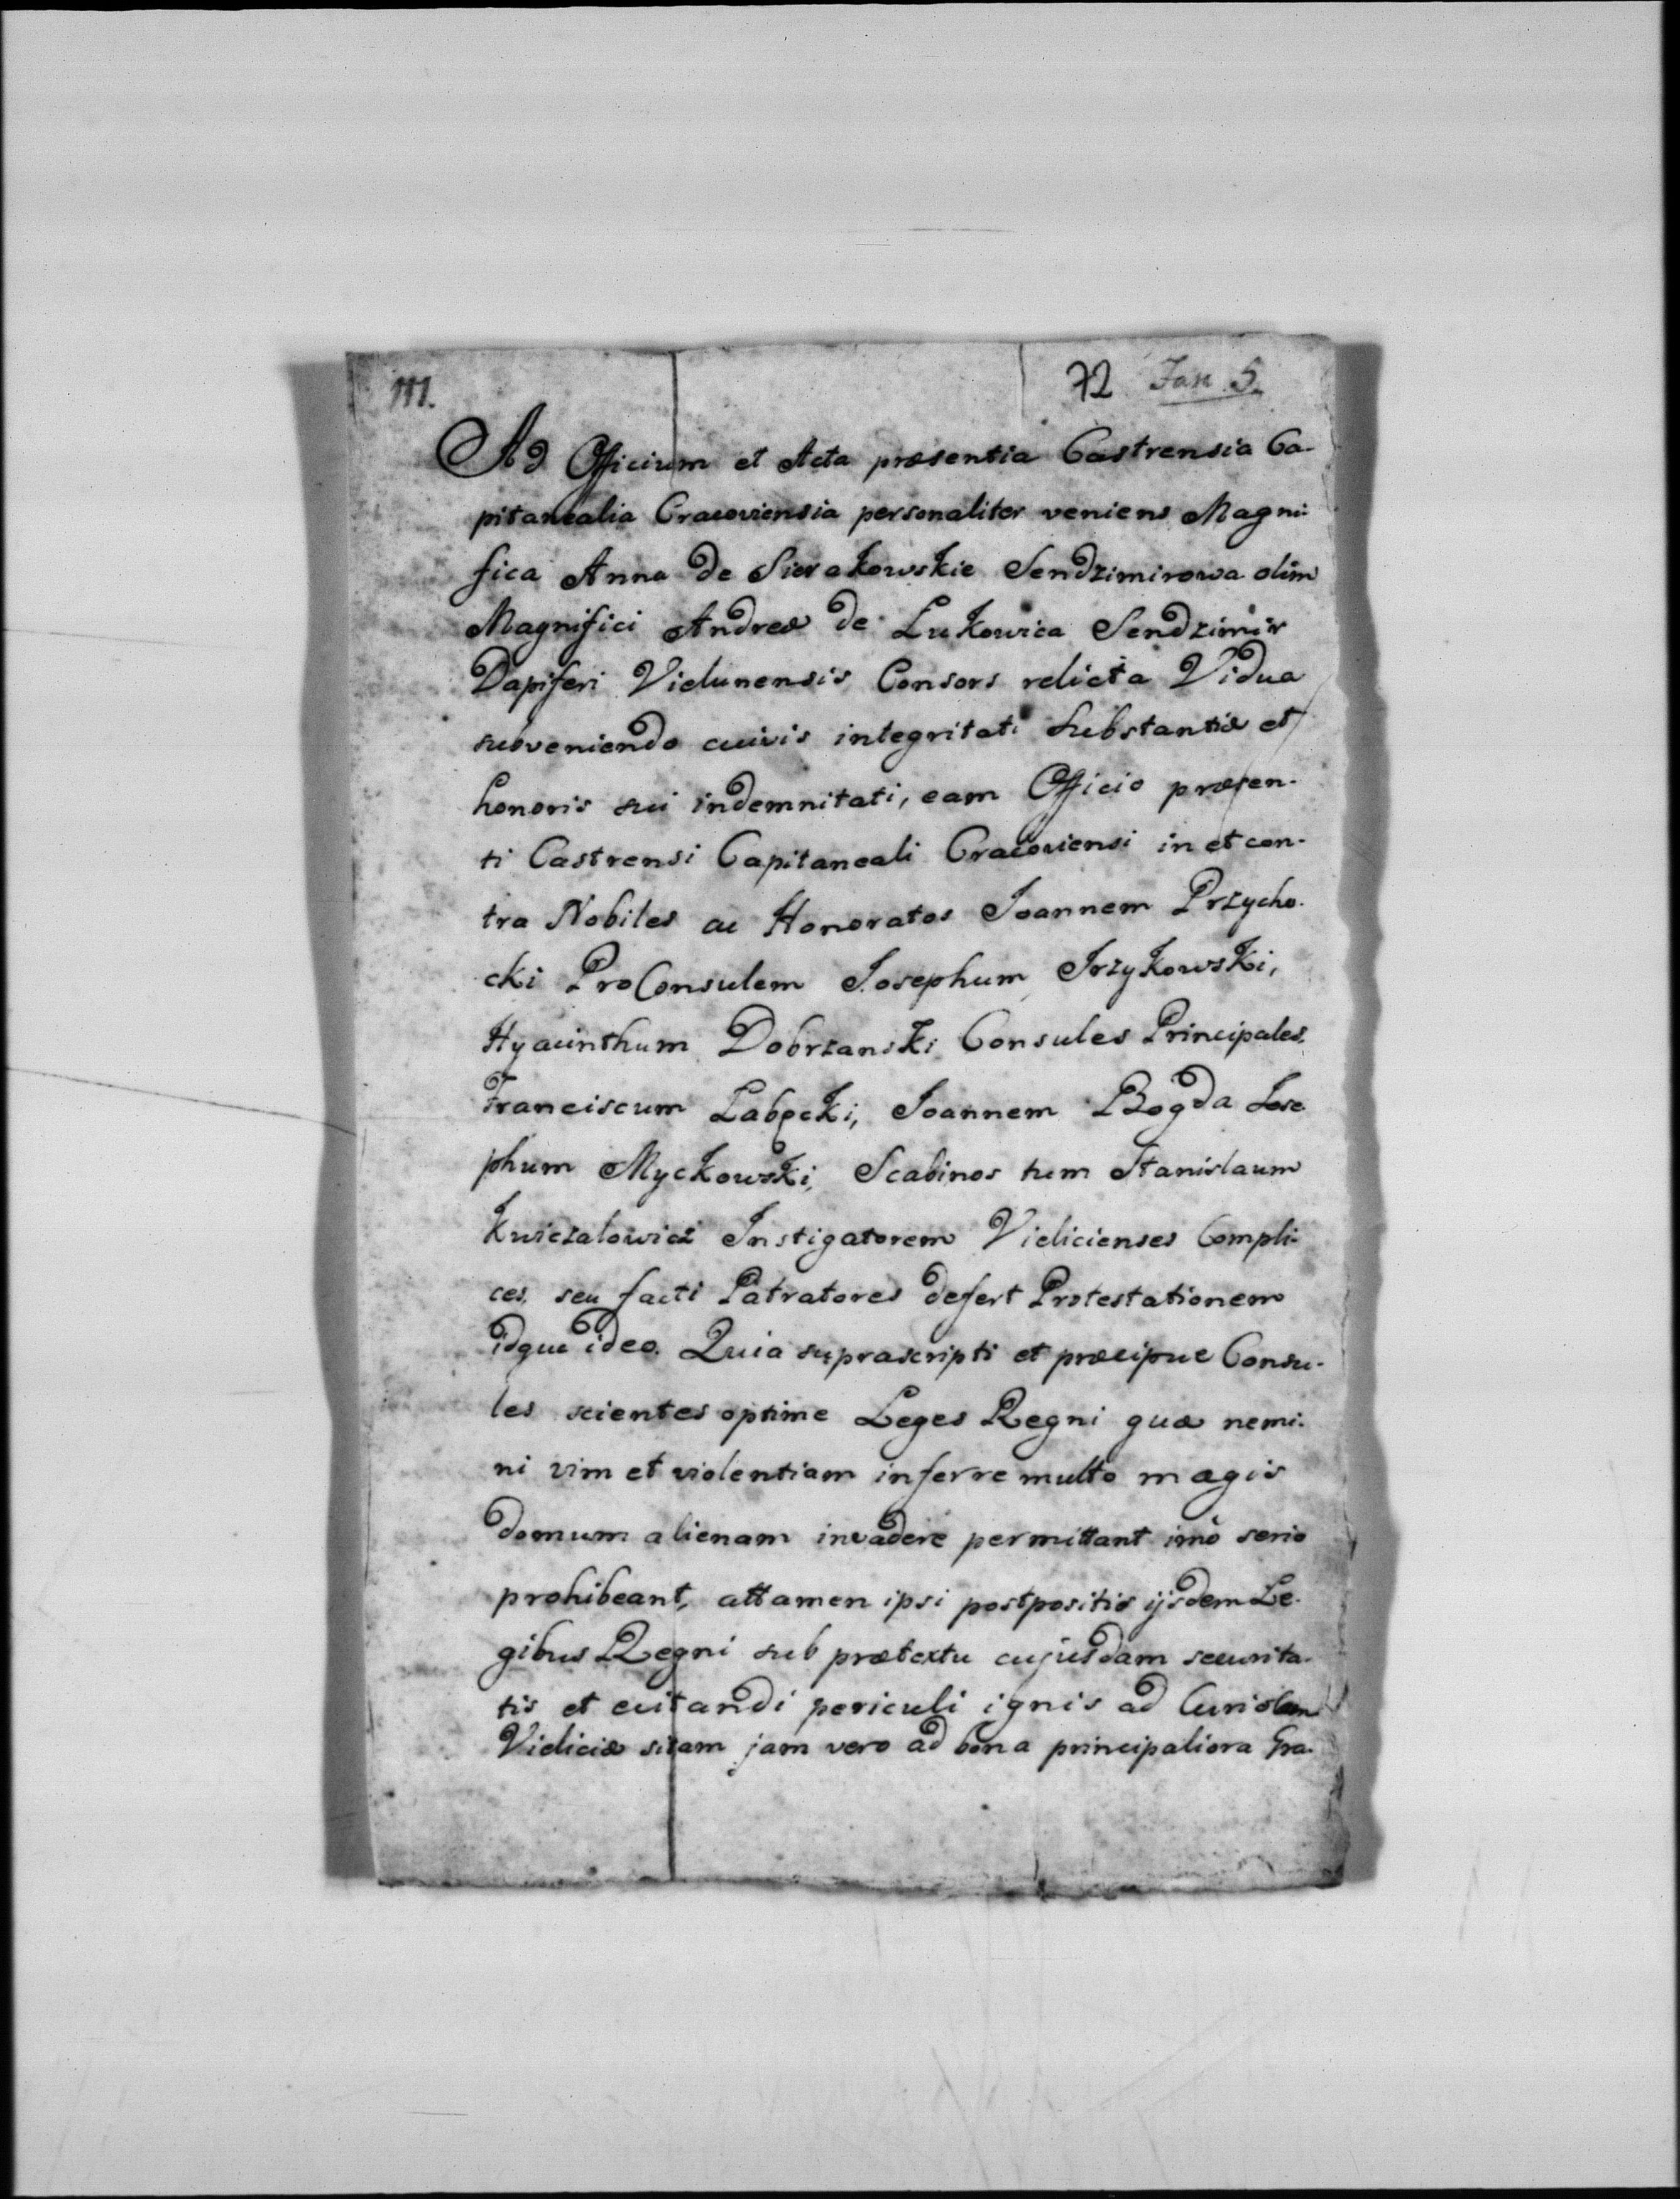 111.
72 Jan 5.
Ad Officium et Acta præsentia Castrensia Ca-
pitanealia Cracoviensia personaliter veniens Magni-
fica Anna de Sierakowskie Sendzimirowa olim
Magnifici Andreæ de Lukowica Sendzimir
Dapiferi Vielunensis Consors relicta Vidua
subveniendo cuivis integritati Substantiæ et
honoris sui indemnitati, eam Officio præsen-
ti Castrensi Capitaneali Cracoviensi in et con-
tra Nobiles ac Honoratos Joannem Przycho-
cki ProConsulem Josephum Jrzykowski,
Hyacinthum Dobrzanski Consules Principales.
Franciscum Łabęcki, Joannem Bogda Jose-
phum Myckowski, Scabinos tum Stanislaum
Kwiczalowicz Instigatorem Vielicienses Compli-
ces, seu facti Patratores defert Protestationem
idque ideo. Quia suprascripti et præcipue Consu-
les scientes optime Leges Regni quæ nemi-
ni vim et violentiam inferre multo magis
domum alienam invadere permittant imò serio
prohibeant, attamen ipsi postpositis ijsdem Le-
gibus Regni sub prætextu cujusdam securita-
tis et evitandi periculi ignis ad Curiolam
Vieliciæ sitam jam vero ad bona principaliora Gra-